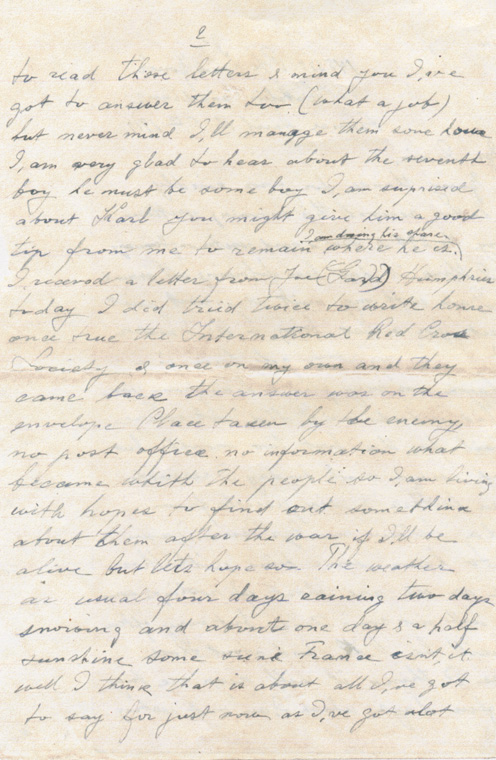 2
to read those letters & mind you I,ve
got to answer them too (what a job)
but never mind I,ll manage them some how
I,am very glad to hear about the seventh
boy he must be some boy I,am suprised
about Karl you might give him a good
I,am doing his share.
tip from me to remain where he is.
I receved a letter from Joe Humphries
today I did tried twice to write home
once true the International Red Cross
Society & once on my own and they
came back the answer was on the
envelope Place taken by the enemy
no post offrice no information what
became whith the people so I,am living
with hopes to find out something
about them after the war if I,ll be
alive but lets hope so. The weather
as usual four days raining two days
snowing and about one day & a half
sunshine some France isnt,it
well I think that is about all I,ve got
to say for just now as I,ve got alot